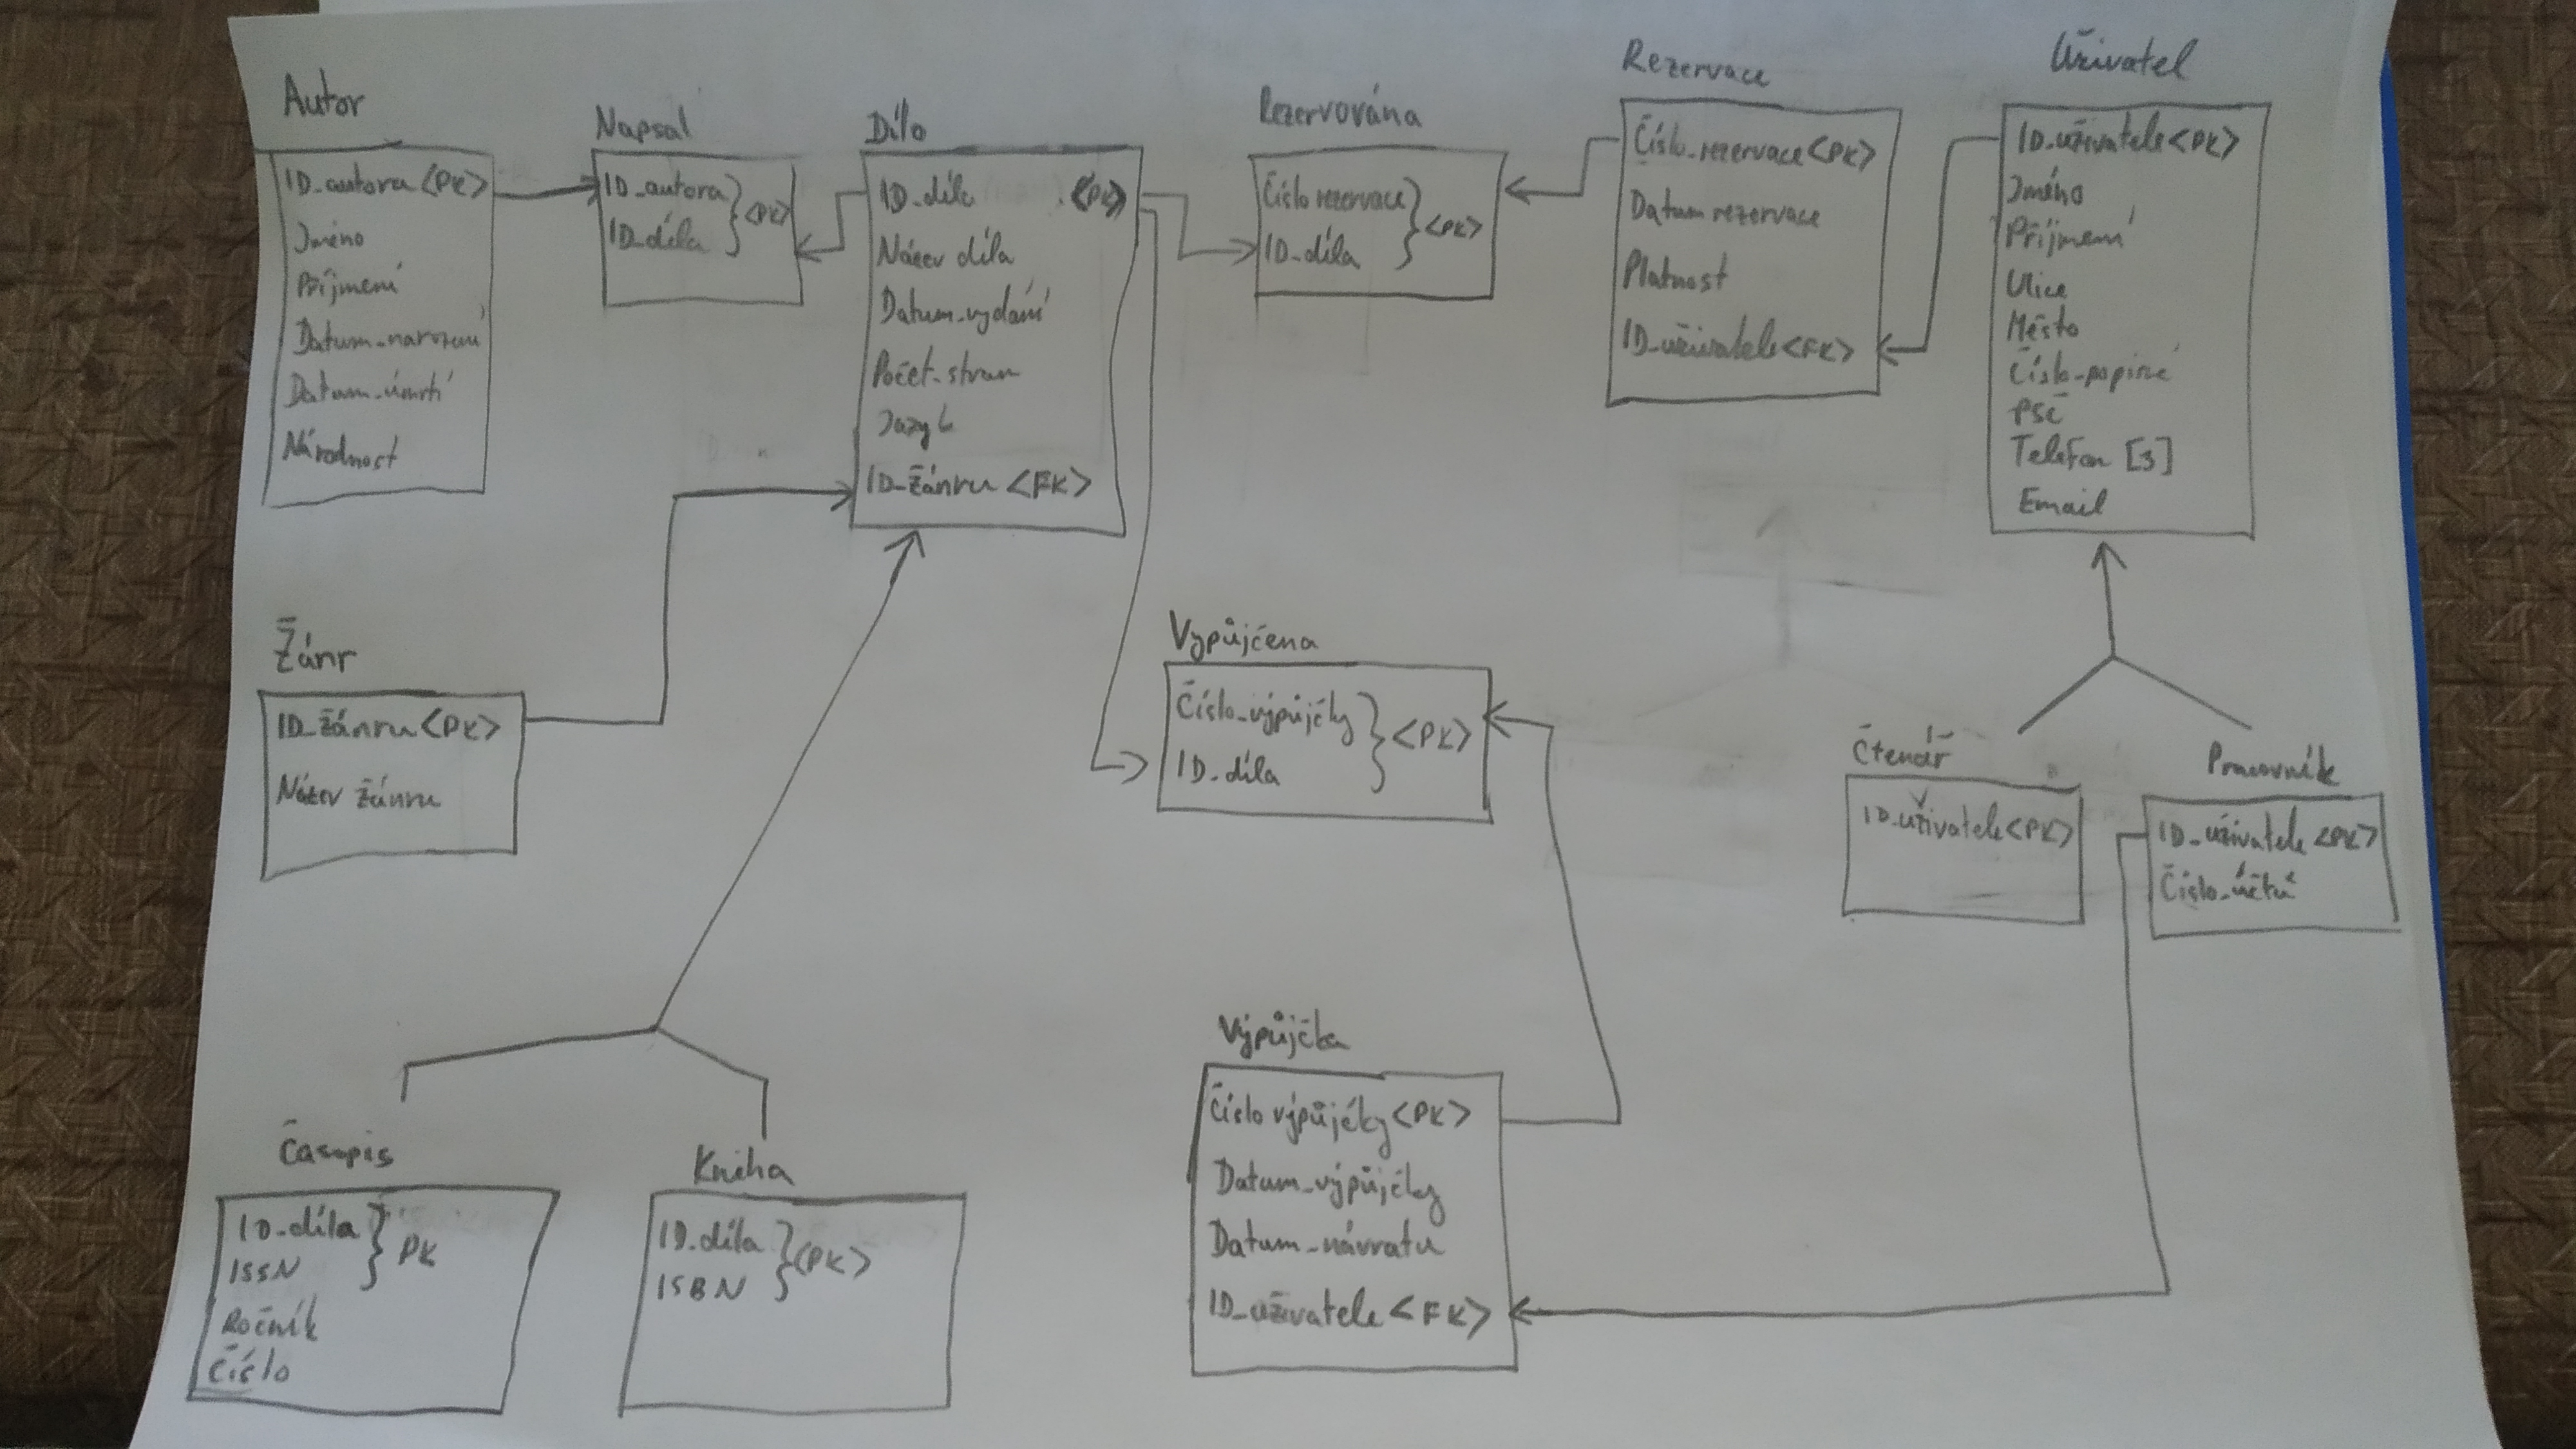 Autor
ID_autora <PK>
Jméno
Příjmení
Datum_narození
Datum_úmrtí
Národnost
Napsal
ID_autora
ID_díla
<PK>
Dílo
ID_díla <PK>
Název díla
Datum_vydání
Počet_stran
Jazyk
ID_žánru <FK>
Rezervována
Číslo rezervace
ID_díla
<PK>
Rezervace
Číslo_rezervace <PK>
Datum rezervace
Platnost
ID_uživatele <FK>
Uživatel
ID_uživatele <PK>
Jméno
Příjmení
Ulice
Město
Číslo_popisné
PSČ
Telefon [3]
Email
Žánr
ID_žánru <PK>
Název žánru
Vypůjčena
Číslo_výpůjčky
ID_díla
<PK>
Čtenář
ID_uživatele <PK>
Pracovník
ID_uživatele <PK>
Číslo_účtu
Časopis
ID_díla
ISSN
PK
Ročník
Číslo
Kniha
ID_díla
ISBN
<PK>
Výpůjčka
Číslo výpůjčky <PK>
Datum_výpůjčky
Datum_návratu
ID_uživatele <FK>